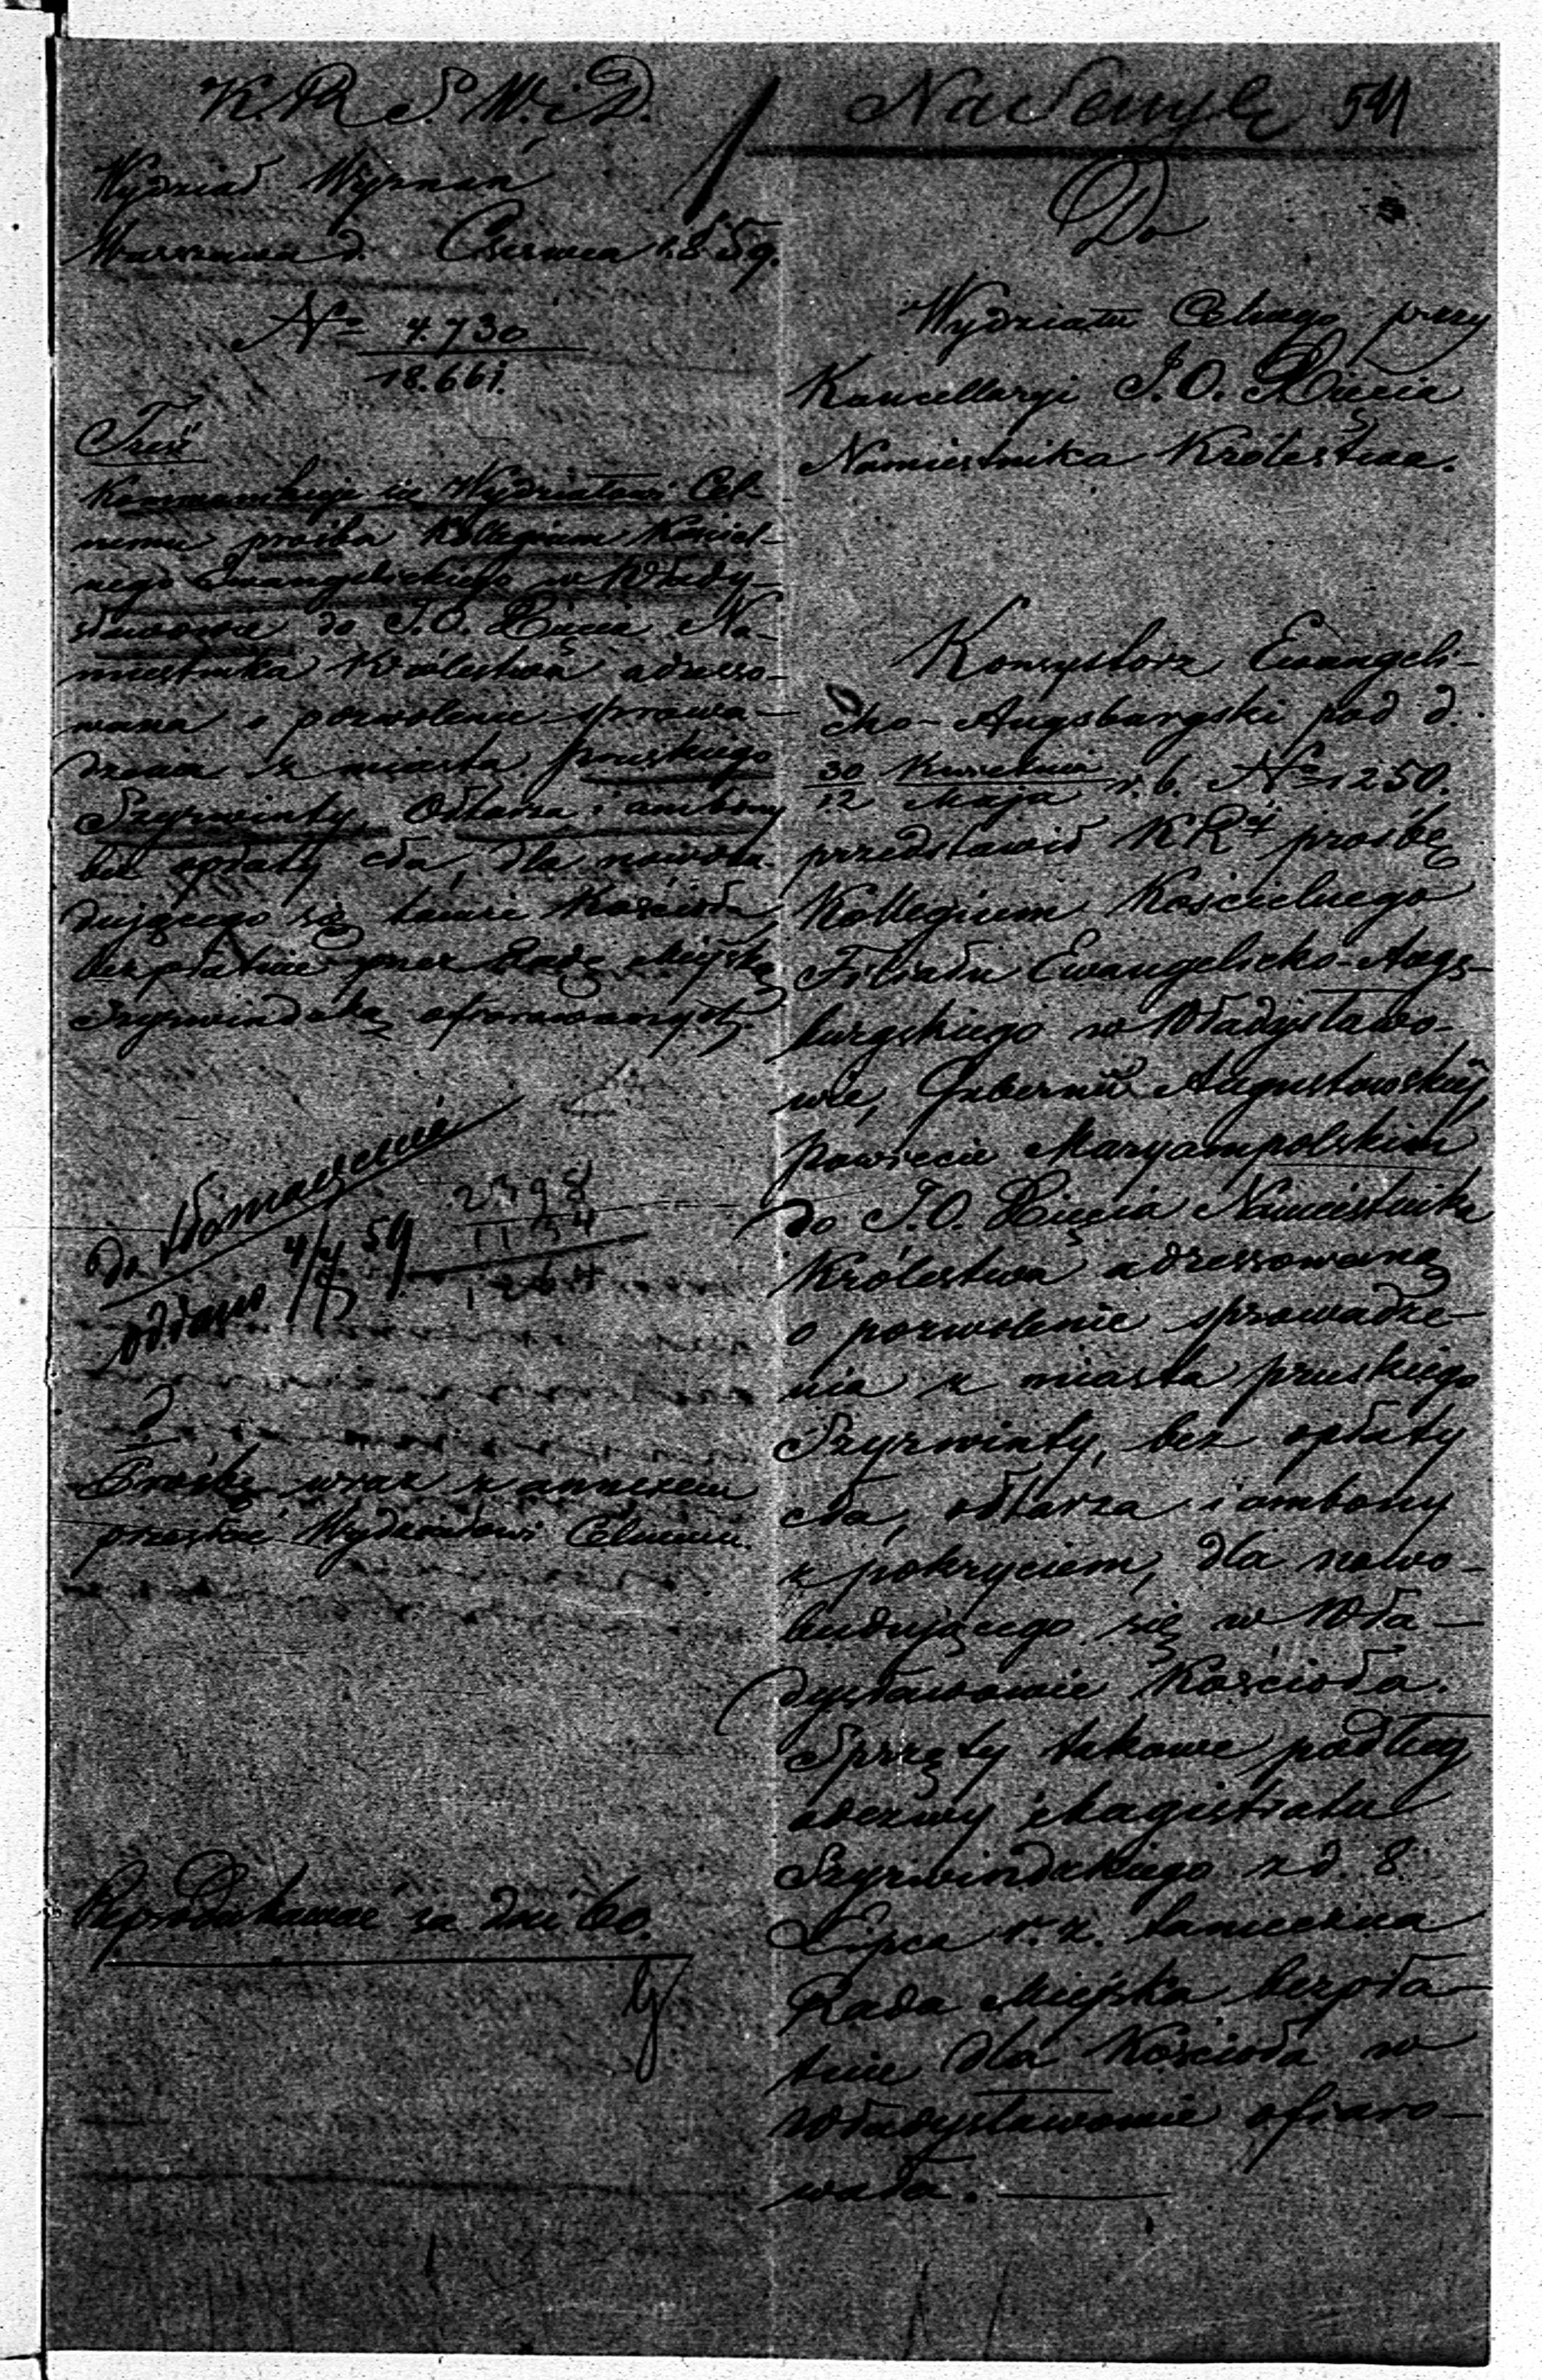 K. R. S. W. i D.
Wydział Wyznań
Warszawa d. Czerwca 1859.
No 4.730
18.661.
Treść
Kommunikuje się Wydziałowi Cel-
nemu prośba Kollegium Kościel-
nego Ewangelickiego w Włady-
sławowie do J. O. Xięcia Na-
miestnika Królestwa adresso-
wana o pozwolenie sprowa-
dzenia z miasta pruskiego
Szyrwinty, Ołtarza i ambony
bez opłaty cła, dla nowobu-
dującego się tamże Kościoła
bezpłatnie przez Radę Miejską
Szyrwindzką ofiarowanych.
do tłómaczenia
oddano 59
2398
1134
1264
Prośbę wraz z annexem
przesłać Wydziałowi Celnemu.
Reprodukować za dni 60.
Na Senyłę 541
Do
Wydziału Celnego przy
Kancellaryi J. O. Xięcia
Namiestnika Królestwa.
Konsystorz Ewangeli-
cko-Augsburgski pod d.
30 Kwietnia
12 Maja r. b. No 1250.
przedstawił KRej prośbę
Kollegium Kościelnego
Filiału Ewangelicko-Augs-
burgskiego w Władysławo-
wie, Gubernii Augustowskiej,
Powiecie Maryampolskim
do J. O. Xięcia Namiestnika
Królestwa adressowaną
o pozwolenie sprowadze-
nia z miasta pruskiego
Szyrwinty, bez opłaty
cła, ołtarza i ambony
z pokryciem, dla nowo-
budującego się w Wła-
dysławowie Kościoła.
Sprzęty takowe podług
odezwy Magistratu
Szyrwindzkiego z d. 8
Lipca r. z. tameczna
Rada Miejska bezpła-
tnie dla Kościoła w
Władysławowie ofiaro-
wała.